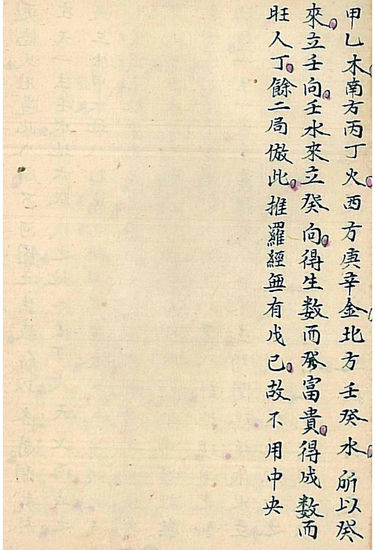 甲乙木南方丙丁火西方庚辛金北方壬癸水所以癸
來立壬向壬水來立癸向得生数而發富貴得成数而
旺人丁餘二局倣此推羅經無有戊己故不用中央